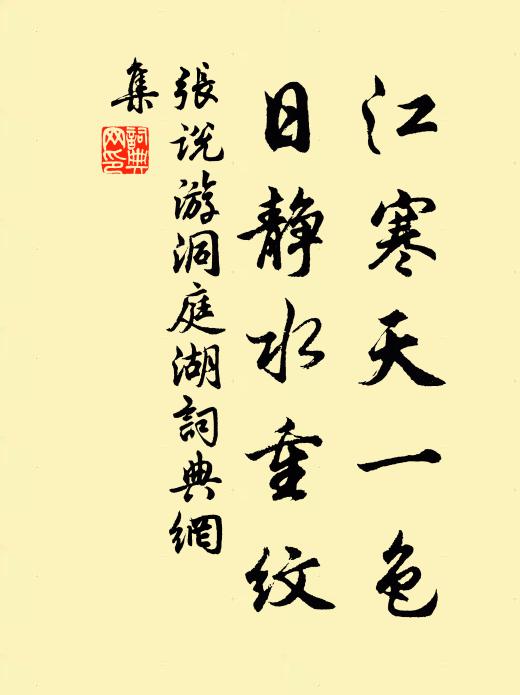 江寒天一色
日静水重纹
張说游洞庭湖詞典網
集
詞典網印